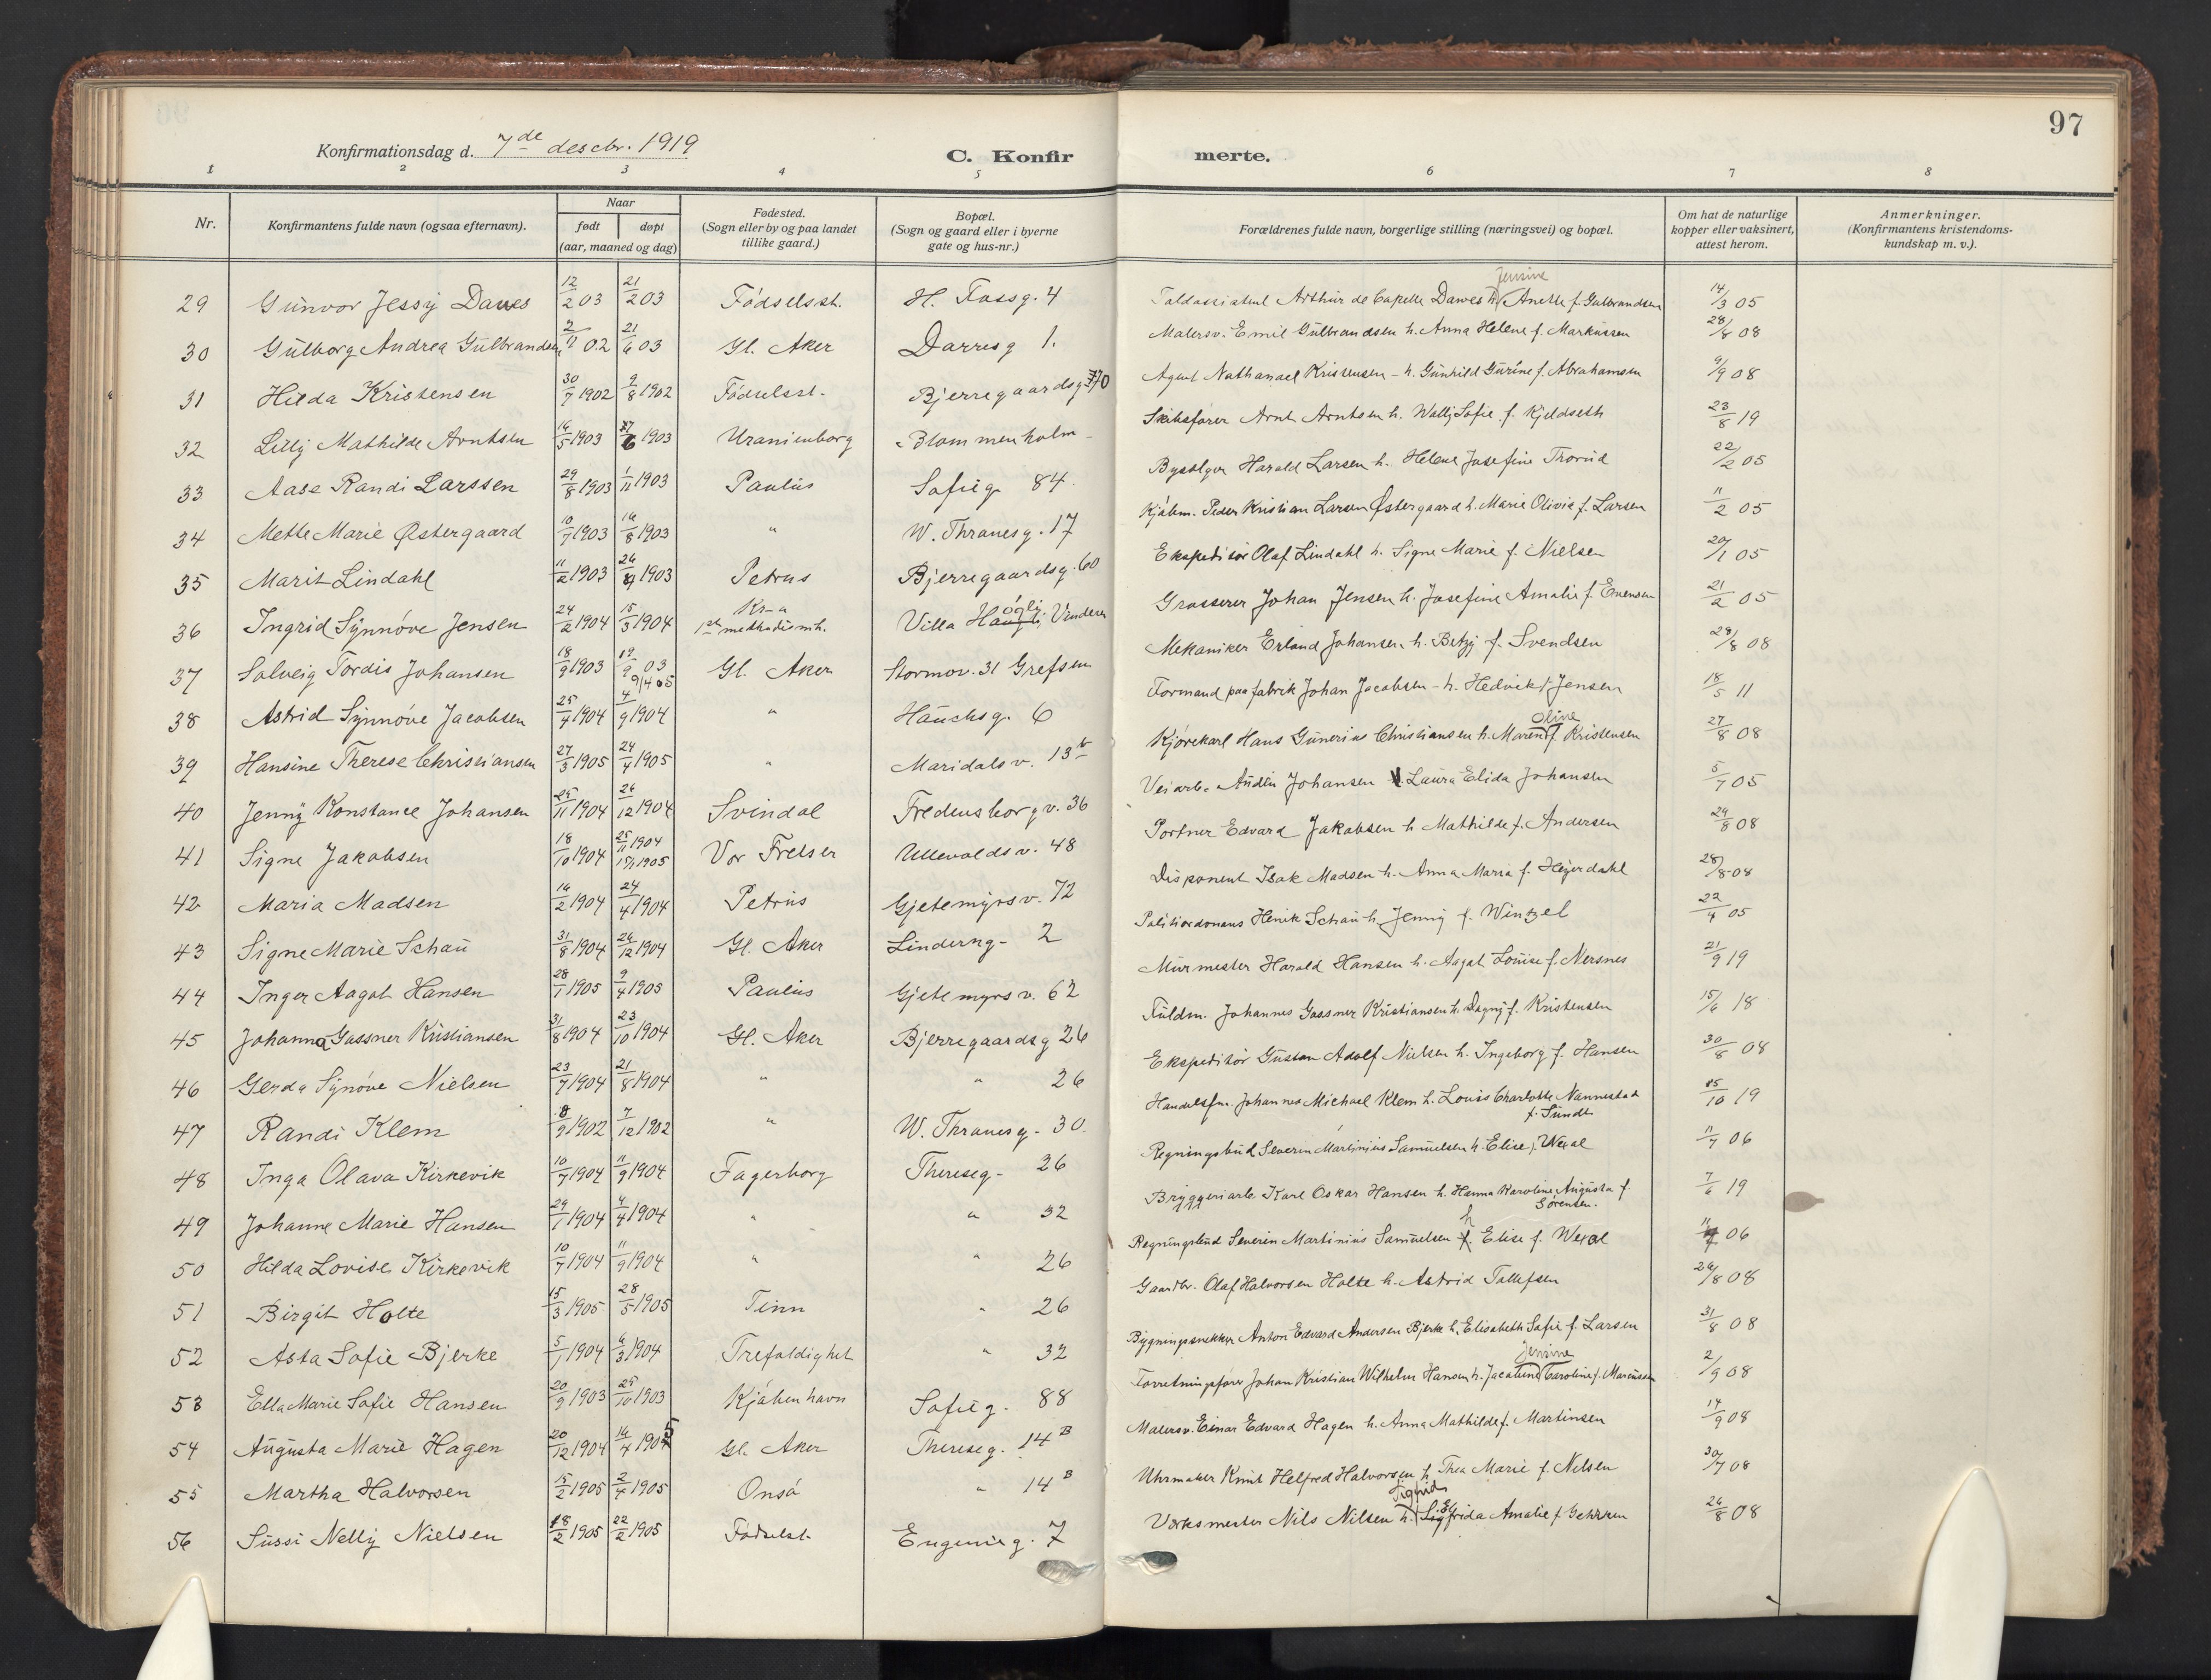 97
Konfirmationsdag d. 7de desebr. 1919
C. Konfirmerte.
1 2 3 4 5 6 7 8
Nr. Konfirmantens fulde navn (ogsaa efternavn). Naar født døpt (aar, maaned og dag) Fødested. (Sogn eller by og paa landet tillike gaard.) Bopæl. (Sogn og gaard eller i byerne gate og hus-nr.) Forældrenes fulde navn, borgerlige stilling (næringsvei) og bopæl. Om hat de naturlige kopper eller vaksinert, attest herom. Anmerkninger. (Konfirmantens kristendoms-kundskap m. v.).
29 Gunvor Jessy Dawes 12/2 03 21/2 03 Födselsst. H. Fossg. 4 Toldassistent Arthur de Capelle Dawes h. Jensine Anette f. Gulbrandsen 14/3 05
30 Gulborg Andrea Gulbrandsen 02 21/6 03 Gl. Aker Darresg 1. Malersv. Emil Gulbrandsen h. Anna Helene f. Markussen 28/8 08
31 Hilda Kristensen 30/7 1902 9/8 1902 Födselsst. Bjerregaardsg 70 Agent Nathanael Kristensen - h. Gunhild Gurine f. Abrahamsen 9/9 08
32 Lilly Mathilde Arntsen 14/5 1903 27/6 1903 Uranienborg Blommenholm Skibsförer Arnt Arntsen h. Wally Sofie f. Kjeldseth 23/8 19
33 Aase Randi Larssen 29/8 1903 1/11 1903 Paulus Sofieg. 84. Harald Larsen h. Helene Josefine Trorud 22/2 05
34 Mette Marie Østergaard 10/7 1903 16/8 1903 " W. Thranesg. 17 Kjöbm. Peder Kristian Larsen Østergaard h. Marie Olivia f. Larsen 11/2 05
35 Marit Lindahl 11/2 1903 1903 Petrus Bjerregaardsg. 60 Ekspeditör Olaf Lindahl h. Signe Marie f. Nielsen 20/1 05
36 Ingrid Synnöve Jensen 24/2 1904 15/3 1904 Kr-a 1st methodismh. Villa Haugli, Vinderen Grosserer Johan Jensen h. Josefine Amalie f. Evensen 21/2 05
37 Solveig Tordis Johansen 18/9 1903 19/9 03 9/4 05 Gl. Aker Stormov. 31 Grefsen Mekaniker Erland Johansen h. Betzy f. Svendsen 28/8 08
38 Astrid Synnöve Jacobsen 25/4 1904 4/9 1904 " Hauchsg. 6 Formand paa fabrik Johan Jacobsen - h. Hedvik f. Jensen 18/5 11
39 Hansine Therese Christiansen 27/3 1905 24/4 1905 " Maridalsv. 13b Kjörekarl Hans Gunerius Christiansen h. Maren Oline f. Kristensen 27/8 08
40 Jenny Konstance Johansen 25/11 1904 26/12 1904 Svindal Fredensborgv. 36 Veiarb. Audin Johansen h. Laura Elida Johansen 5/7 05
41 Signe Jakobsen 18/10 1904 25/11 1904 15/1 1905 Vor Frelser Ullevoldsv. 48 Portner Edvard Jakobsen h Mathilde f. Andersen 29/8 08
42 Maria Madsen 16/2 1904 24/4 1904 Petrus Gjetemyrsv. 72 Disponent Isak Madsen h. Anna Maria f. Heyerdahl 28/8 08
43 Signe Marie Schau 31/8 1904 26/12 1904 Gl. Aker Linderng- 2 Politiordonans Henik Schau h. Jenny f. Wintzel 22/4 05
44 Inger Aagot Hansen 28/1 1905 9/4 1905 Paulus Gjetemyrsv. 62 Murmester Harald Hansen h. Aagot Louise f. Nersnes 21/9 19
45 Johanna Gassner Kristiansen 31/8 1904 23/10 1904 Gl. Aker Bjerregaardsg 26 Fuldm. Johannes Gassner Kristiansen h. Dagny f. Kristensen 15/6 18
46 Gerda Synöve Nielsen 23/7 1904 21/8 1904 " " 26 Ekspeditör Gustav Adolf Nielsen h. Ingeborg f. Hansen 30/8 08
47 Randi Klem 8/9 1902 7/12 1902 " W. Thranesg- 30. Handelsfm. Johannes Michael Klem h. Louis Charlotte Nannestad f. Sundt 15/10 19
48 Inga Olava Kirkevik 10/7 1904 11/9 1904 Fagerborg Thereseg- 26 Regningsbud Severin Martinius Samuelsen h. Elise f. Wexal 11/7 06
49 Johanne Marie Hansen 29/1 1904 4/4 1904 " " 32 Bryggeriarb. Karl Oskar Hansen h. Hanna Karoline Augusta f. Sörensen. 7/6 19
50 Hilda Lovise Kirkevik 10/7 1904 11/9 1904 " " 26 Regningsbud Severin Martinius Samuelsen h Elise f. Wexal 06
51 Birgit Holte 15/3 1905 28/5 1905 Tinn " 26 Gaardbr. Olaf Halvorsen Holte h. Astrid Tollefsen 26/8 08
52 Asta Sofie Bjerke 5/1 1904 6/3 1904 Trefoldighet " 32 Bygningssnekker Anton Edvard Andersen Bjerke h. Elisabeth Sofie f. Larsen 31/8 08
53 Ella Marie Sofie Hansen 20/9 1903 25/10 1903 Kjöbenhavn Sofieg. 88 Forretningsförer Johan Kristian Wilhelm Hansen h. Jacobine Jensine Caroline f. Marcussen 2/9 08
54 Augusta Marie Hagen 20/12 1904 16/4 1905 Gl. Aker Thereseg. 14B Malersv. Einar Edvard Hagen h. Anna Mathilde f. Martinsen 14/9 08
55 Martha Halvorsen 15/2 1905 2/4 1905 Onsö " 14B Uhrmaker Knut Helfred Halvorsen h. Thea Marie f. Nelsen 30/7 08
56 Sussi Nelly Nielsen 18/2 1905 22/2 1905 Födselst. Eugenieg. 7 Verksmester Nils Nilsen h. Sigrid Amalie f. 26/8 08